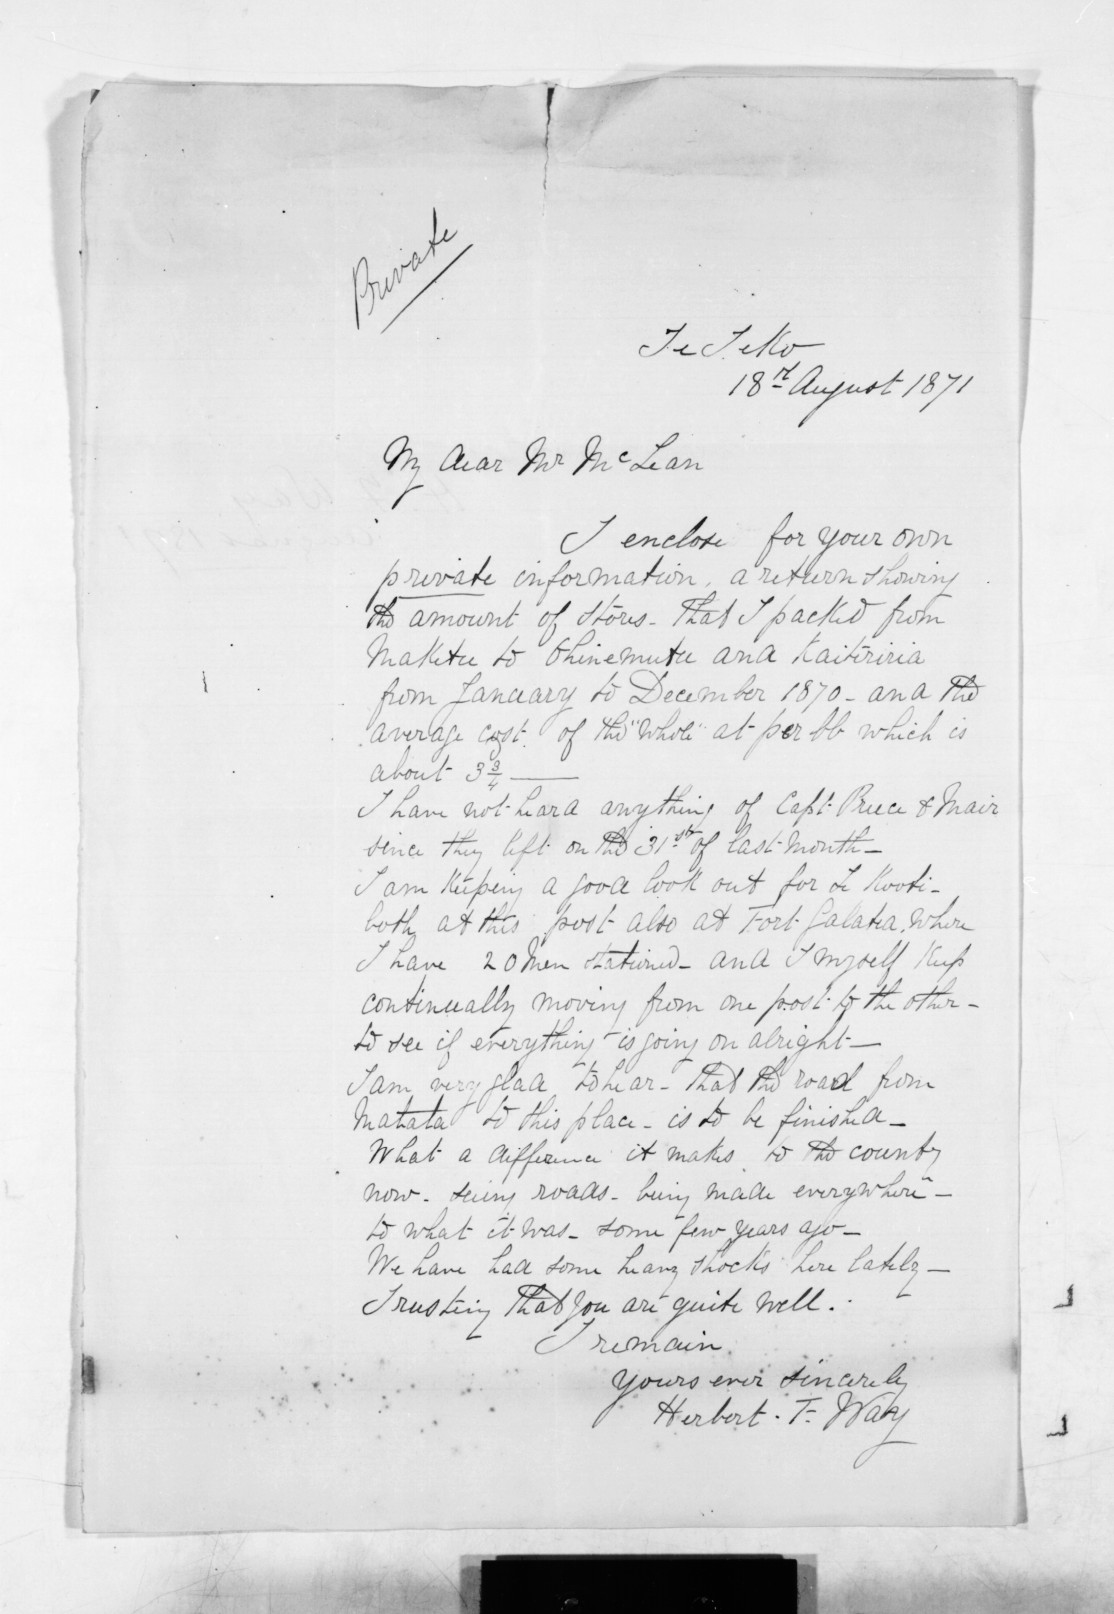 Private
Te Teko
18th August 1871
My dear Mr McLean
I enclose for your own
private information, a return showing
the amount of stores - that I packed from
Maketu to Ohinemutu and Kaiteriria
from January to December 1870 - and the
average cost of the "whole" at per lb which is
about 3 3/4 —
I have not heard anything of Capt. Preece & Mair
since they left on the 31st of last month —
I am keeping a good look out for Te Kooti -
both at this post also at Fort Galatea, where
I have 20 men stationed - and I myself keep
continually moving from one post to the other -
to see if everything is going on alright —
I am very glad to hear - that the road from
Matata to this place - is to be finished -
What a difference it makes to the county
now - seeing roads - being made everywhere -
to what it was - some few years ago -
We have had some heavy shocks here lately -
Trusting that you are quite well.
I remain
yours ever sincerely
Herbert. F. Way